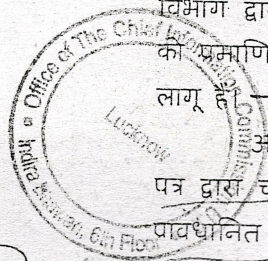 विभाग द्वा
की प्रमाणि
लागू है। -
पत्र द्वारा च
प्रावधानित
Office of The Chief Information Commissioner
Lucknow
Indira Bhawan, 6th Floor